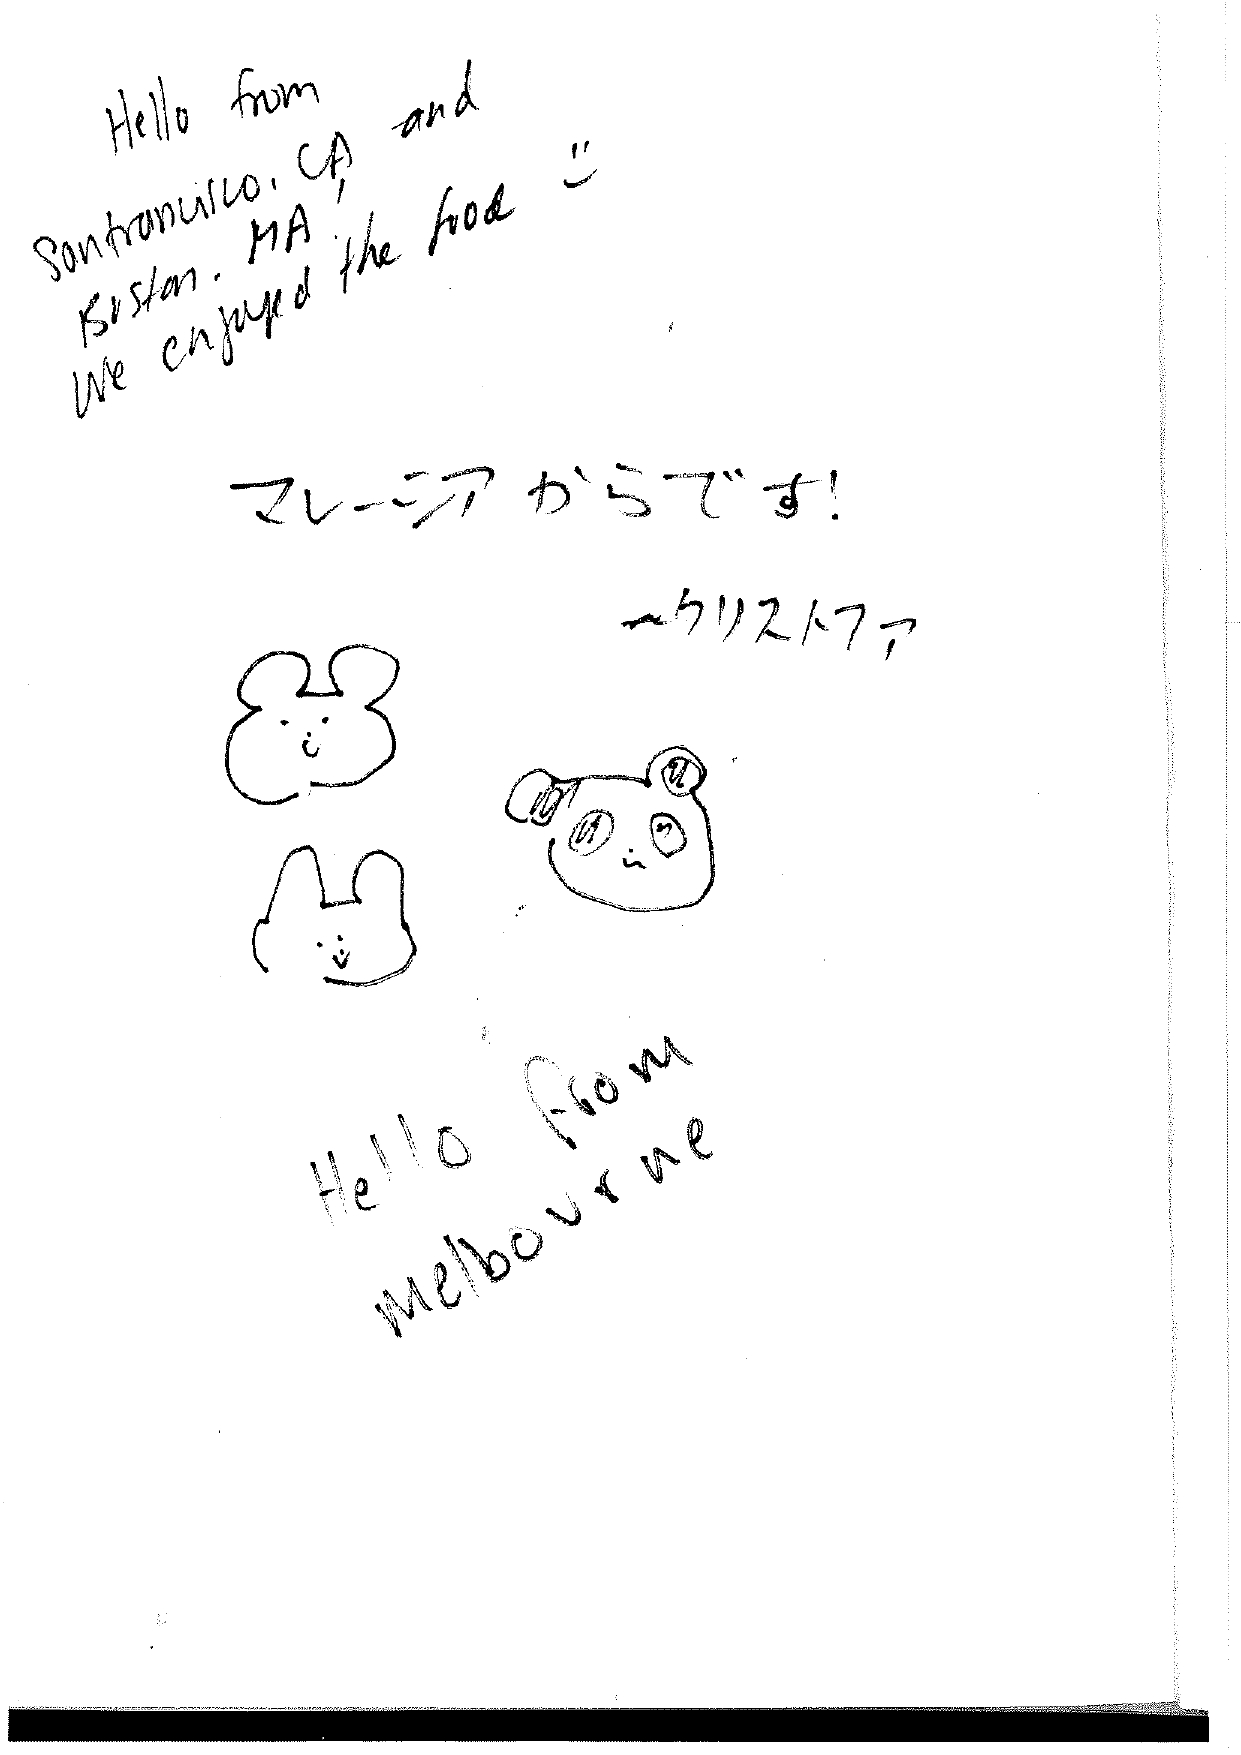 Hello from
Sanfrancisco, CA and
Boston, MA,
We enjoyed the food
マレーシアからです!
～クリストファ
Hello from
melbourne